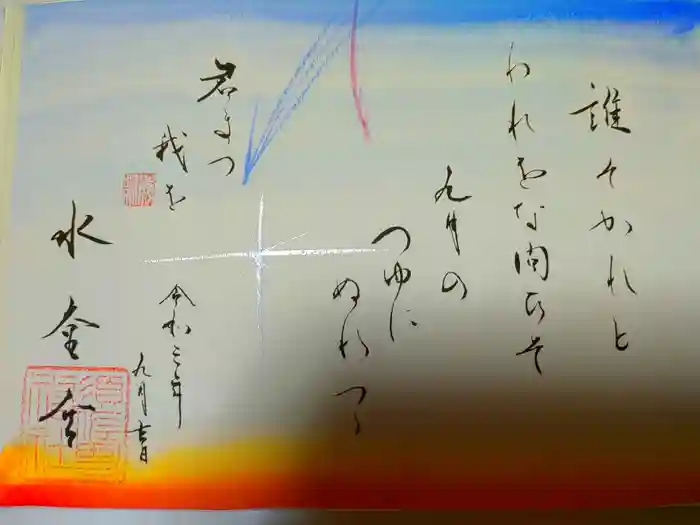 誰そかれと
われをな問ひそ
九月の
つゆに
ぬれつゝ
君まつ
我を
令和三年
九月吉日
水金会